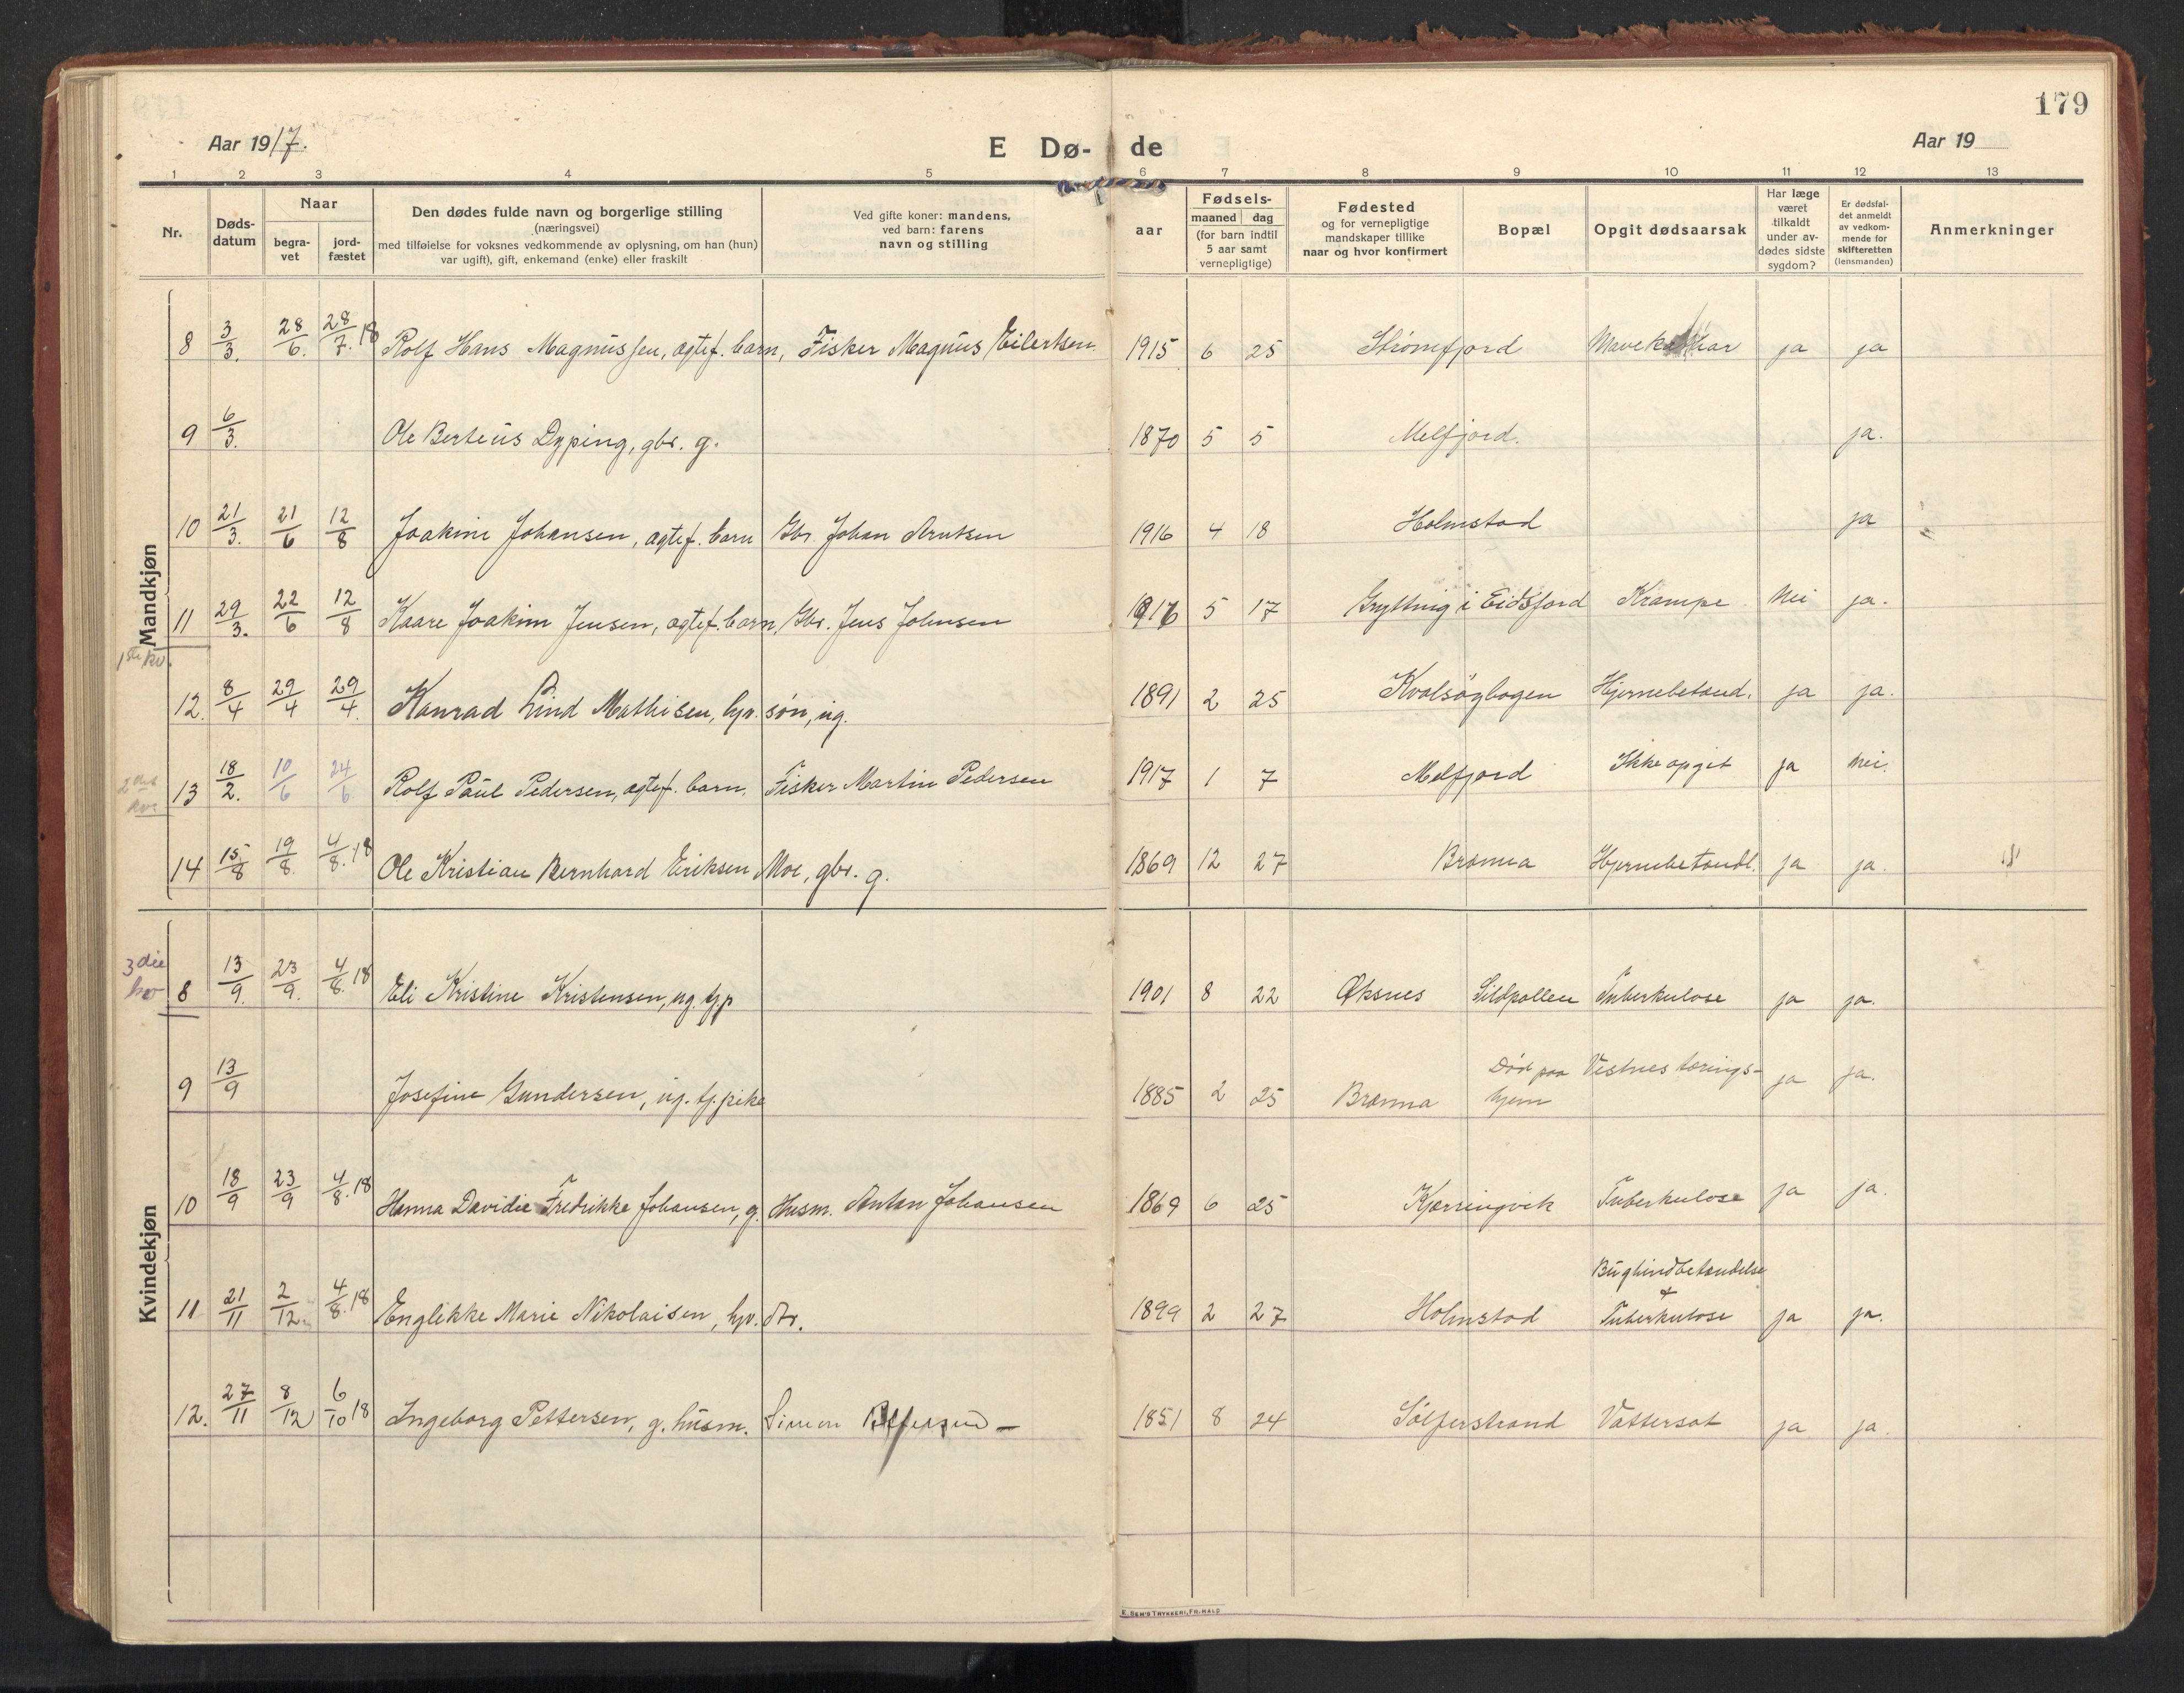 179
Aar 1917.
E Dø- de
Aar 19
1 2 3 4 5 6 7 8 9 10 11 12 13
Nr.
Døds-
datum
Naar
begra-
vet
jord-
fæstet
Den dødes fulde navn og borgerlige stilling
(næringsvei)
med tilføielse for voksnes vedkommende av oplysning, om han (hun)
var ugift), gift, enkemand (enke) eller fraskilt
Ved gifte koner: mandens,
ved barn: farens
navn og stilling
aar
Fødsels-
maaned dag
(for barn indtil
5 aar samt
vernepligtige)
Fødested
og for vernepligtige
mandskaper tillike
naar og hvor konfirmert
Bopæl
Opgit dødsaarsak
Har læge
været
tilkaldt
under av-
dødes sidste
sygdom?
Er dødsfal-
det anmeldt
av vedkom-
mende for
skifteretten
(lensmanden)
Anmerkninger
Mandkjøn
8 3/3. 28/6. 28/7. 18 Rolf Hans Magnussen, ægtef. barn, Fisker Magnus Eilertsen 1915 6 25 Strømfjord ja ja
9 6/3. Ole Berteus Dyping, gbr. g. 1870 5 5 Melfjord. ja.
10 21/3. 21/6 12/8 Joakim Johansen, ægtef. barn Gbr. Johan Arntsen 1916 4 18 Holmstad ja
11 29/3. 22/6 12/8 Kaare Joakim Jensen, ægtef. barn, Gbr. Jens Johnsen 1916 5 17 Grytting i Eidsfjord Krampe Nei ja.
1ste kv.
12. 8/4 29/4 29/4. Konrad Lind Mathisen, hjv. søn, ug. 1891 2 25 Hjernebetænd. ja ja.
2det kv.
13 18/2. 10/6 24/6. Rolf Paul Pedersen, ægtef. barn. Fisker Martin Pedersen 1917 1 7 Melfjord Ikke opgit ja nei.
14 15/8 19/8. 4/8. 18 Ole Kristian Bernhard Eriksen Moe, gbr. g. 1869 12 27 Brænna Hjernebetændl. ja ja.
3die kv
Kvindekjøn
8 13/9. 23/9. 4/8. 18 Eli Kristine Kristensen, ug. tjp 1901 8 22 Øksnes Sildpollen Tuberkulose ja ja.
9 13/9 Josefine Gundersen, ug. tj. pike 1885 2 25 Brænna Død paa Vestnes tærings-
hjem ja ja.
10 18/9 23/9 4/8. 18 Hanna Davidie Fredrikke Johansen, g. Husm. Anton Johansen 1869 6 25 Kjærringvik Tuberkulose ja ja.
11 21/11 2/12. 4/8. 18 Englikke Marie Nikolaisen, hjv. dtr. 1899 2 27 Holmstad Bughindbetændelse
& Tuberkulose ja ja.
12. 27/11 8/12 6/10 18 Ingeborg Pettersen, g. husm. Simon Pettersen — 1851 8 24 Sølferstrand Vattersot ja ja.
E. SEM'S TRYKKERI, FR.HALD